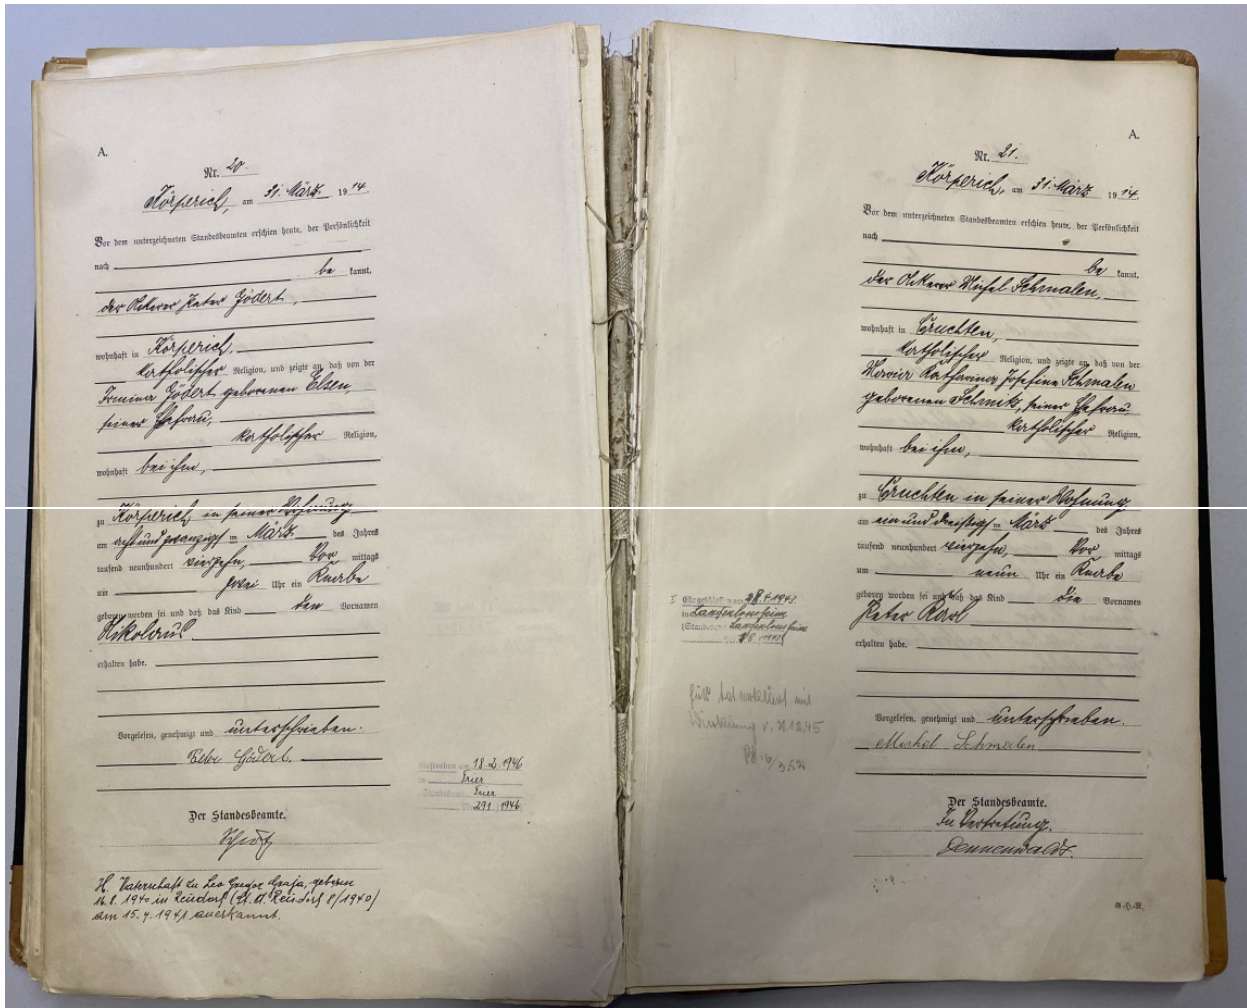 A.
Nr. 20.
Körperich, am 31. März 1914.
Vor dem unterzeichneten Standesbeamten erschien heute, der Persönlichkeit
nach
be kannt,
der Ackerer Peter Gödert,
wohnhaft in Körperich,
katholischer Religion, und zeigte an, daß von der
Irmina Gödert geborenen Elsen,
seiner Ehefrau,
katholischer Religion,
wohnhaft bei ihm,
zu Körperich in seiner Wohnung
am acht und zwanzigsten März des Jahres
tausend neunhundert vierzehn, Vor mittags
um zwei Uhr ein Knabe
geboren worden sei und daß das Kind den Vornamen
Nikolaus
erhalten habe.
Vorgelesen, genehmigt und unterschrieben.
Peter Gödert.
Der Standesbeamte.
H. Vaterschaft zu Leo Gregor, geboren
16.8.1940 in Reisdorf (St. A. Reisdorf 8/1940)
am 15.4.1941 anerkannt.
Gestorben am 18.2.1946
in Trier
Standesamt Trier
Nr. 291 1946
A.
Nr. 21.
Körperich, am 31. März 1914.
Vor dem unterzeichneten Standesbeamten erschien heute, der Persönlichkeit
nach
be kannt,
der Ackerer Michel Schmalen,
wohnhaft in Cruchten,
katholischer Religion, und zeigte an, daß von der
Maria Katharina Josefine Schmalen
geborenen Schmitz, seiner Ehefrau,
katholischer Religion,
wohnhaft bei ihm,
zu Cruchten in seiner Wohnung
am ein und dreißigsten März des Jahres
tausend neunhundert vierzehn, Vor mittags
um neun Uhr ein Knabe
geboren worden sei und daß das Kind die Vornamen
Peter Karl
erhalten habe.
Vorgelesen, genehmigt und unterschrieben.
Michel Schmalen
Der Standesbeamte.
In Vertretung.
Dennenwaldt.
I Eheschließung am 28.4.1943
in Langenlonsheim
(Standesamt Langenlonsheim
für tot erklärt mit
Wirkung v. 31.12.45